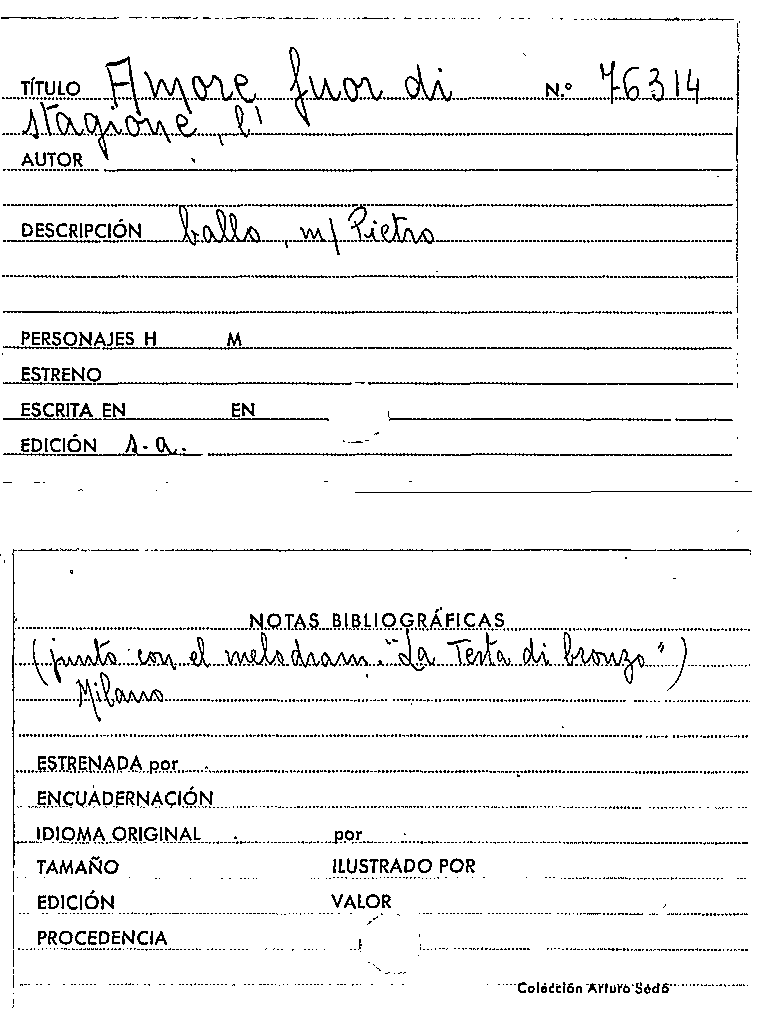 TÍTULO Amore fuor di N.º 76314
stagione, l'
AUTOR
DESCRIPCIÓN ballo, m/ Pietro
PERSONAJES H M
ESTRENO
ESCRITA EN EN
EDICIÓN s.a.
NOTAS BIBLIOGRÁFICAS
(junto con el melodram. "La Testa di bronzo")
Milano
ESTRENADA por
ENCUADERNACIÓN
IDIOMA ORIGINAL por
TAMAÑO ILUSTRADO POR
EDICIÓN VALOR
PROCEDENCIA
Colección Arturo Sedó